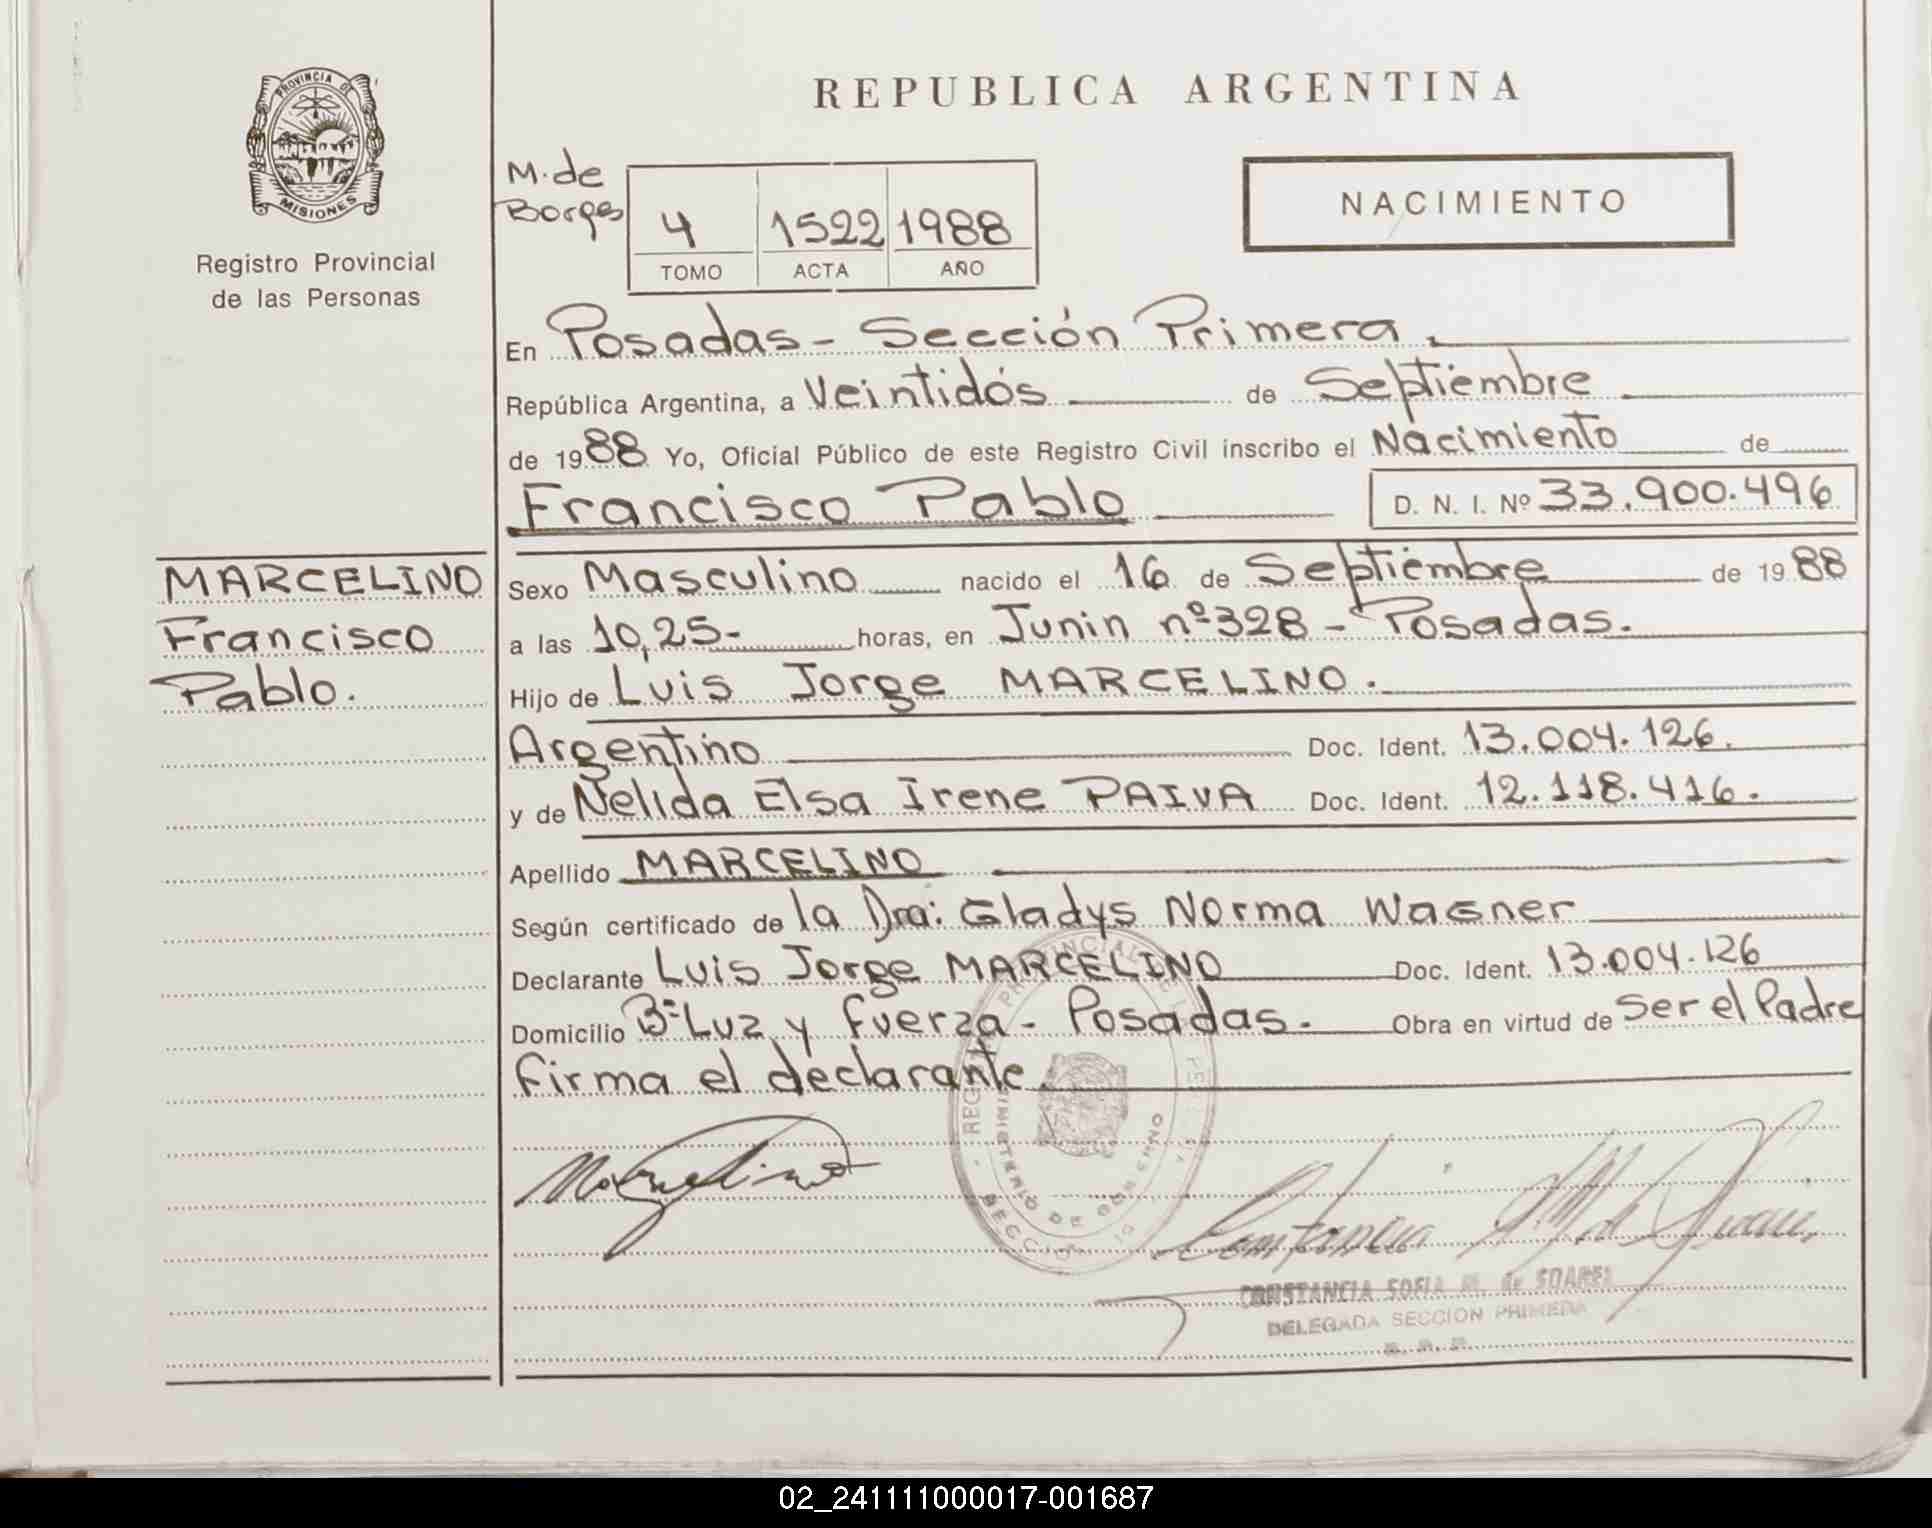 PROVINCIA DE
MISIONES
Registro Provincial
de las Personas
REPUBLICA ARGENTINA
M. de
Borges
4 1522 1988
TOMO ACTA AÑO
NACIMIENTO
En Posadas - Sección Primera.
República Argentina, a Veintidós de Septiembre
de 1988 Yo, Oficial Público de este Registro Civil inscribo el Nacimiento de
Francisco Pablo D. N. I. Nº 33.900.496
MARCELINO
Francisco
Pablo.
Sexo Masculino nacido el 16 de Septiembre de 1988
a las 10,25- horas, en Junin nº 328 - Posadas.
Hijo de Luis Jorge MARCELINO.
Argentino Doc. Ident. 13.004.126.
y de Nelida Elsa Irene PAIVA Doc. Ident. 12.118.416.
Apellido MARCELINO
Según certificado de la Dra: Gladys Norma Wagner
Declarante Luis Jorge MARCELINO Doc. Ident. 13.004.126
Domicilio Bº Luz y Fuerza - Posadas. Obra en virtud de Ser el Padre
firma el declarante.
Marcelino
MINISTERIO DE GOBIERNO
CONSTANCIA SOFIA M. de SOAREZ
DELEGADA SECCION PRIMERA
02_241111000017-001687